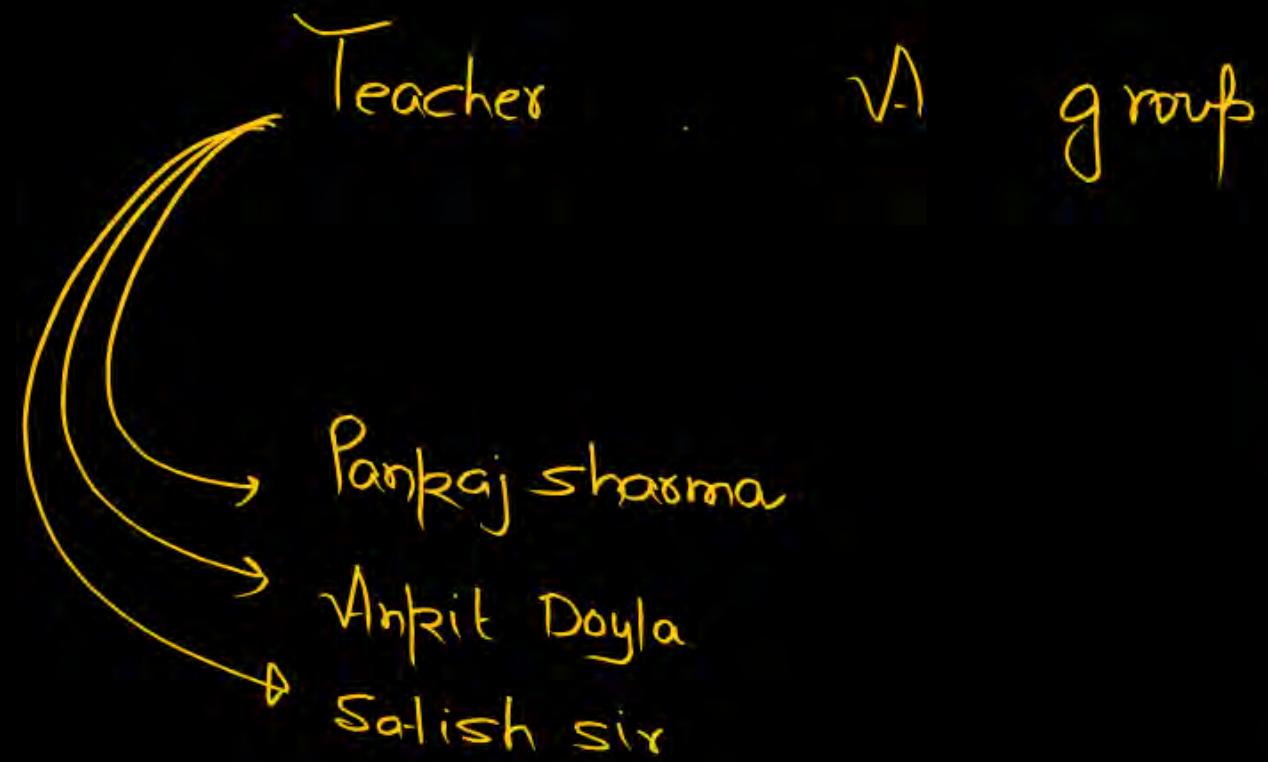 Teacher A group
Pankaj sharma
Ankit Doyla
Satish sir